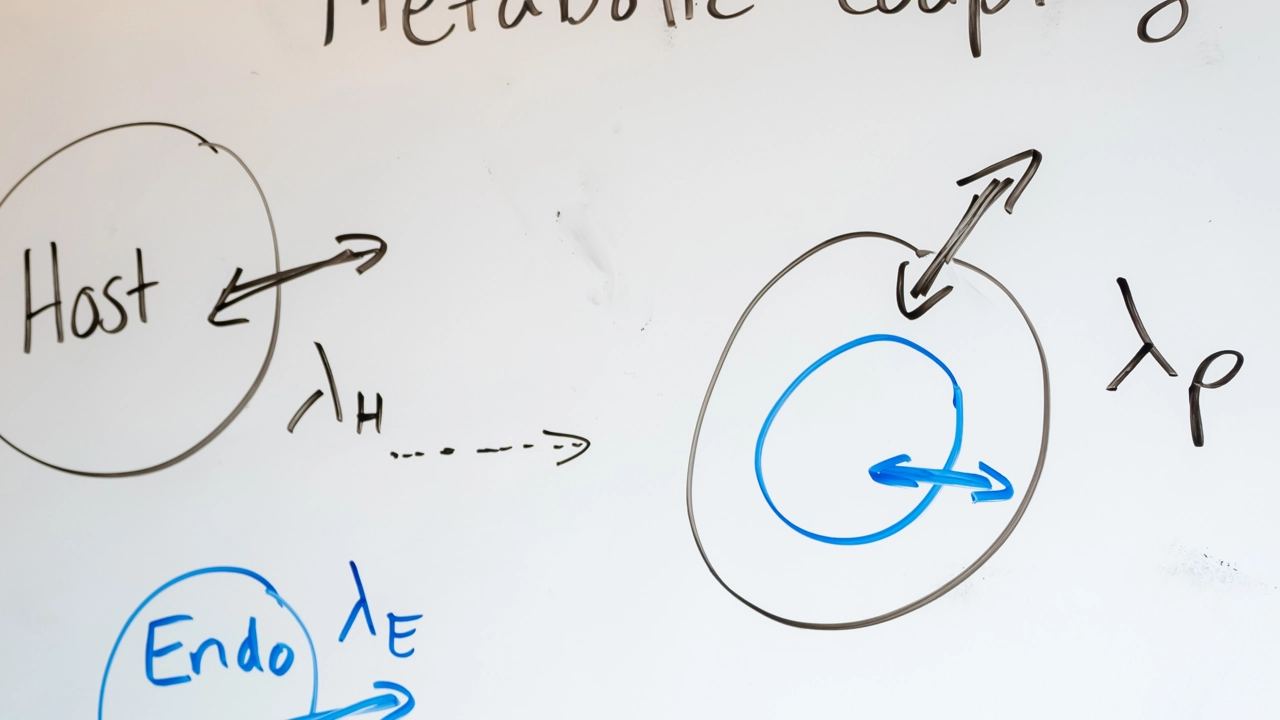 Metabolic Coupling
Host
λH
λρ
Endo
λE